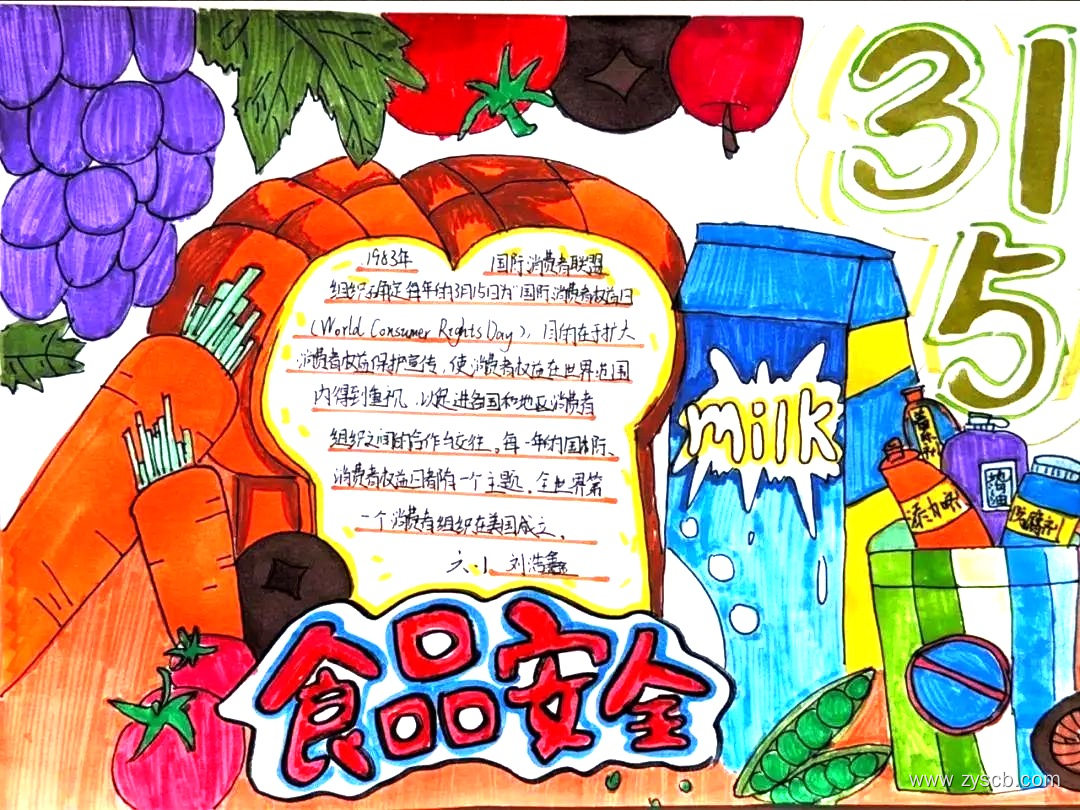 31
5
1983年 国际消费者联盟
组织确定每年的3月15日为"国际消费者权益日
(World Consumer Rights Day), 目的在于扩大
消费者权益保护宣传,使消费者权益在世界范围
内得到重视,以促进各国和地区消费者
组织之间的合作与交往。每一年的国际
消费者权益日都有一个主题。全世界第
一个消费者组织在美国成立。
六.1 刘浩鑫
milk
添加剂
地沟油
防腐剂
食品安全
www.zyscb.com